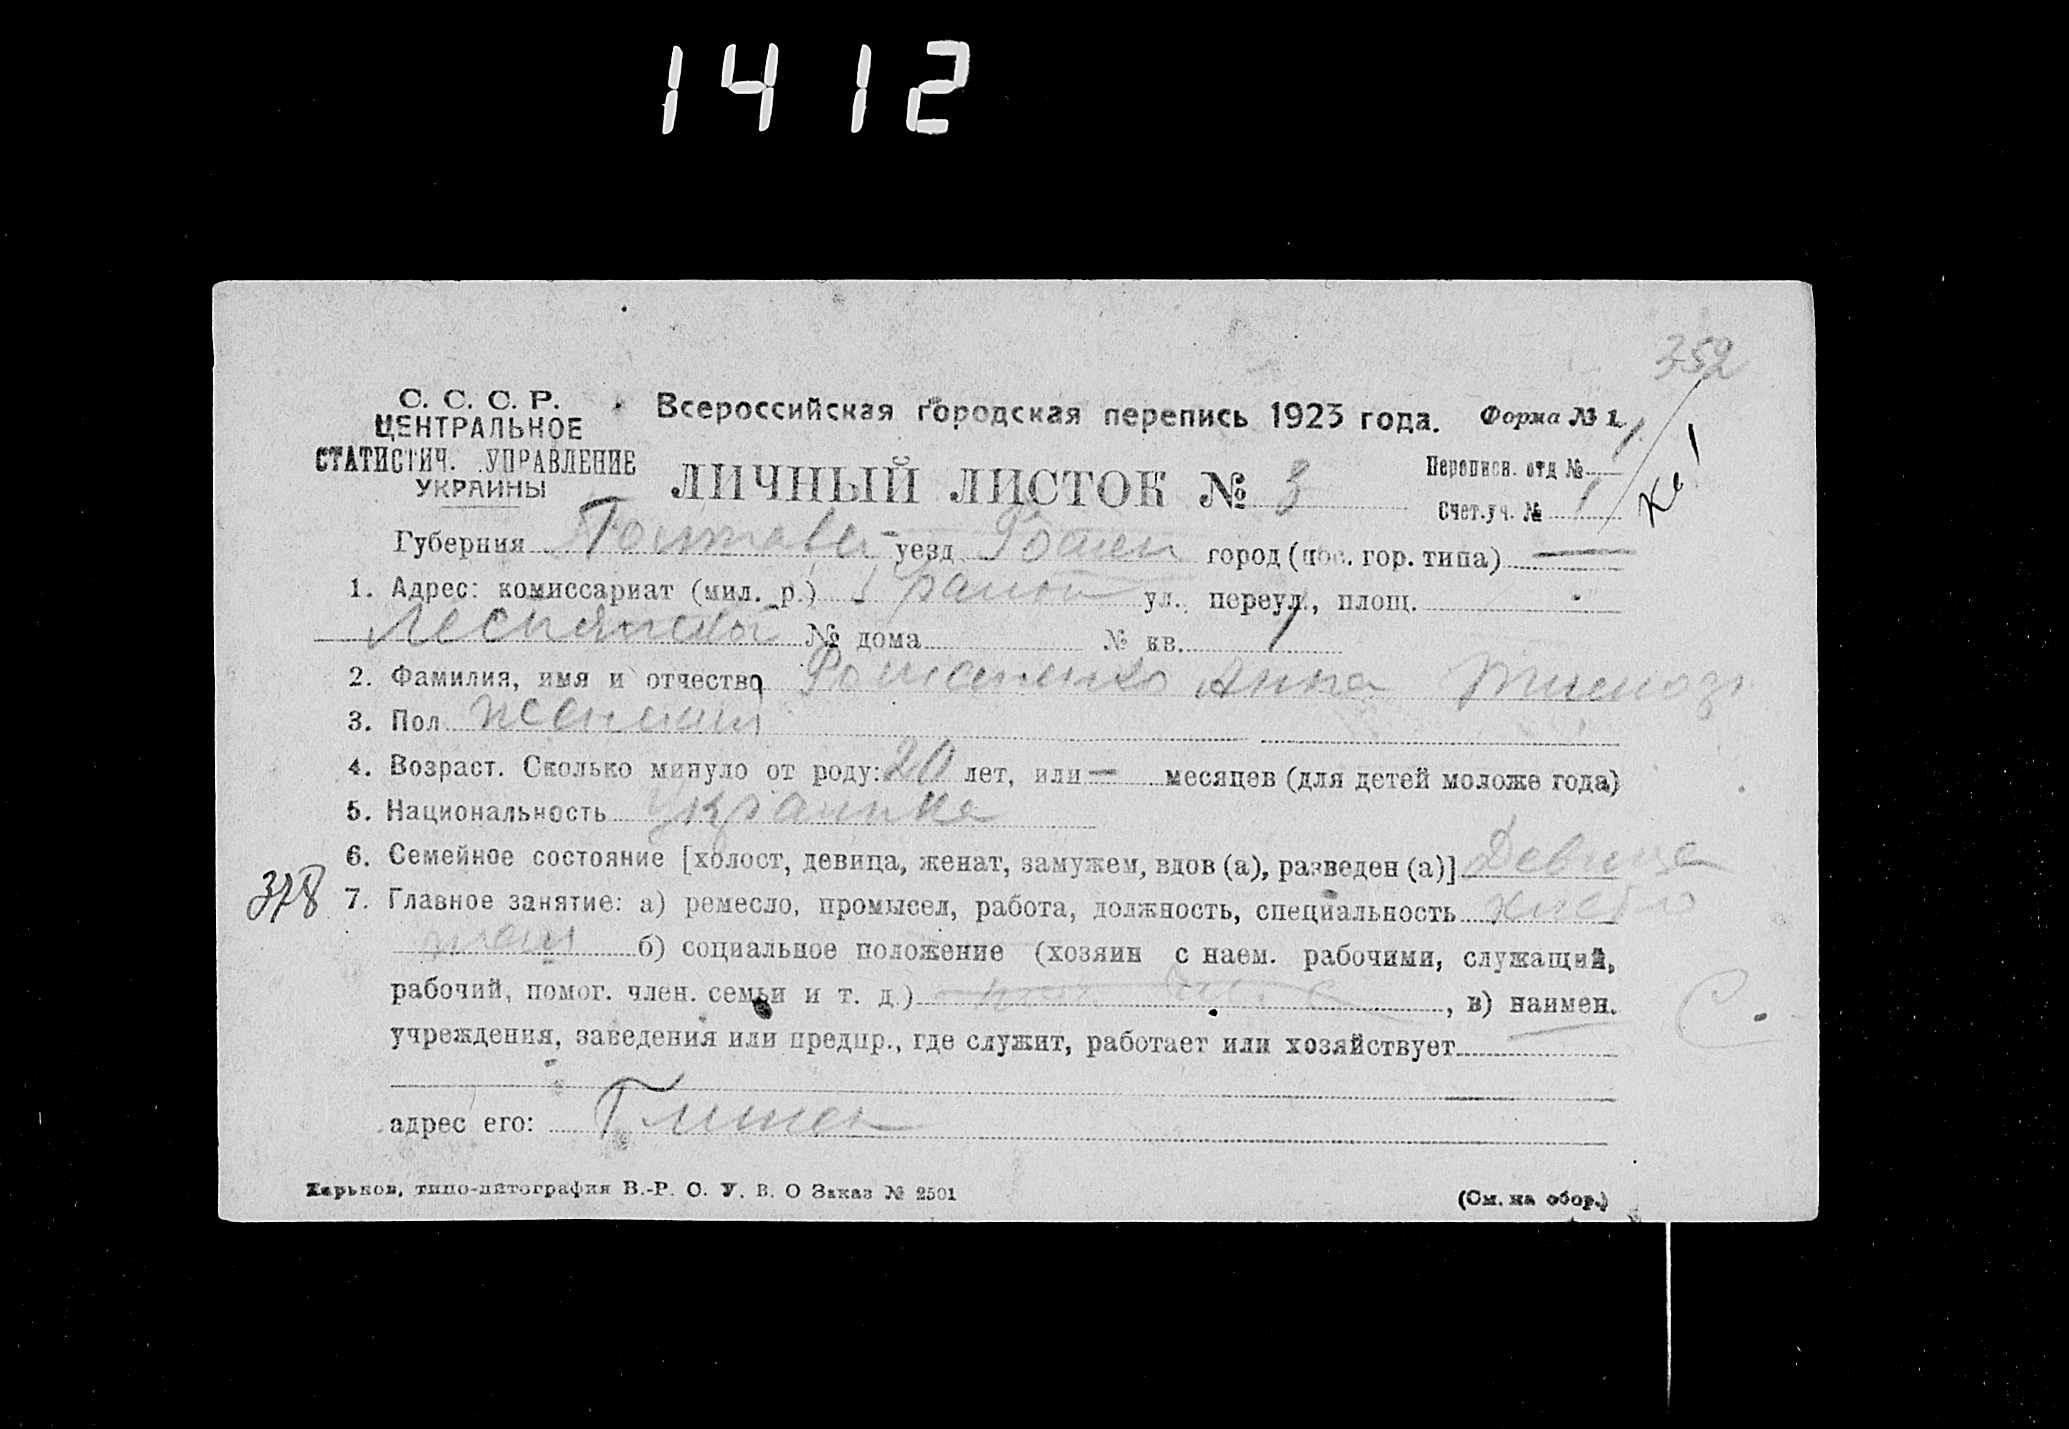 1412
352
С. С. С. Р.
ЦЕНТРАЛЬНОЕ
СТАТИСТИЧ. УПРАВЛЕНИЕ
УКРАИНЫ
Всероссийская городская перепись 1923 года. Форма № 1.
ЛИЧНЫЙ ЛИСТОК № 3
Переписн. отд № 1
Счет.уч. № 1
Губерния уезд Ромен город (пос. гор. типа) —
1. Адрес: комиссариат (мил. р.) район ул., переул., площ.
№ дома № кв. 1
2. Фамилия, имя и отчество Романенко Анна
3. Пол женский
4. Возраст. Сколько минуло от роду: 20 лет, или — месяцев (для детей моложе года)
5. Национальность Украинка
6. Семейное состояние [холост, девица, женат, замужем, вдов (а), разведен (а)] Девица
378
7. Главное занятие: а) ремесло, промысел, работа, должность, специальность хлебо
паш б) социальное положение (хозяин с наем. рабочими, служащий,
рабочий, помог. член. семьи и т. д.) , в) наимен.
учреждения, заведения или предпр., где служит, работает или хозяйствует
адрес его:
Харьков, типо-литография В.-Р. С. У. В. О Заказ № 2501
(См. на обор.)